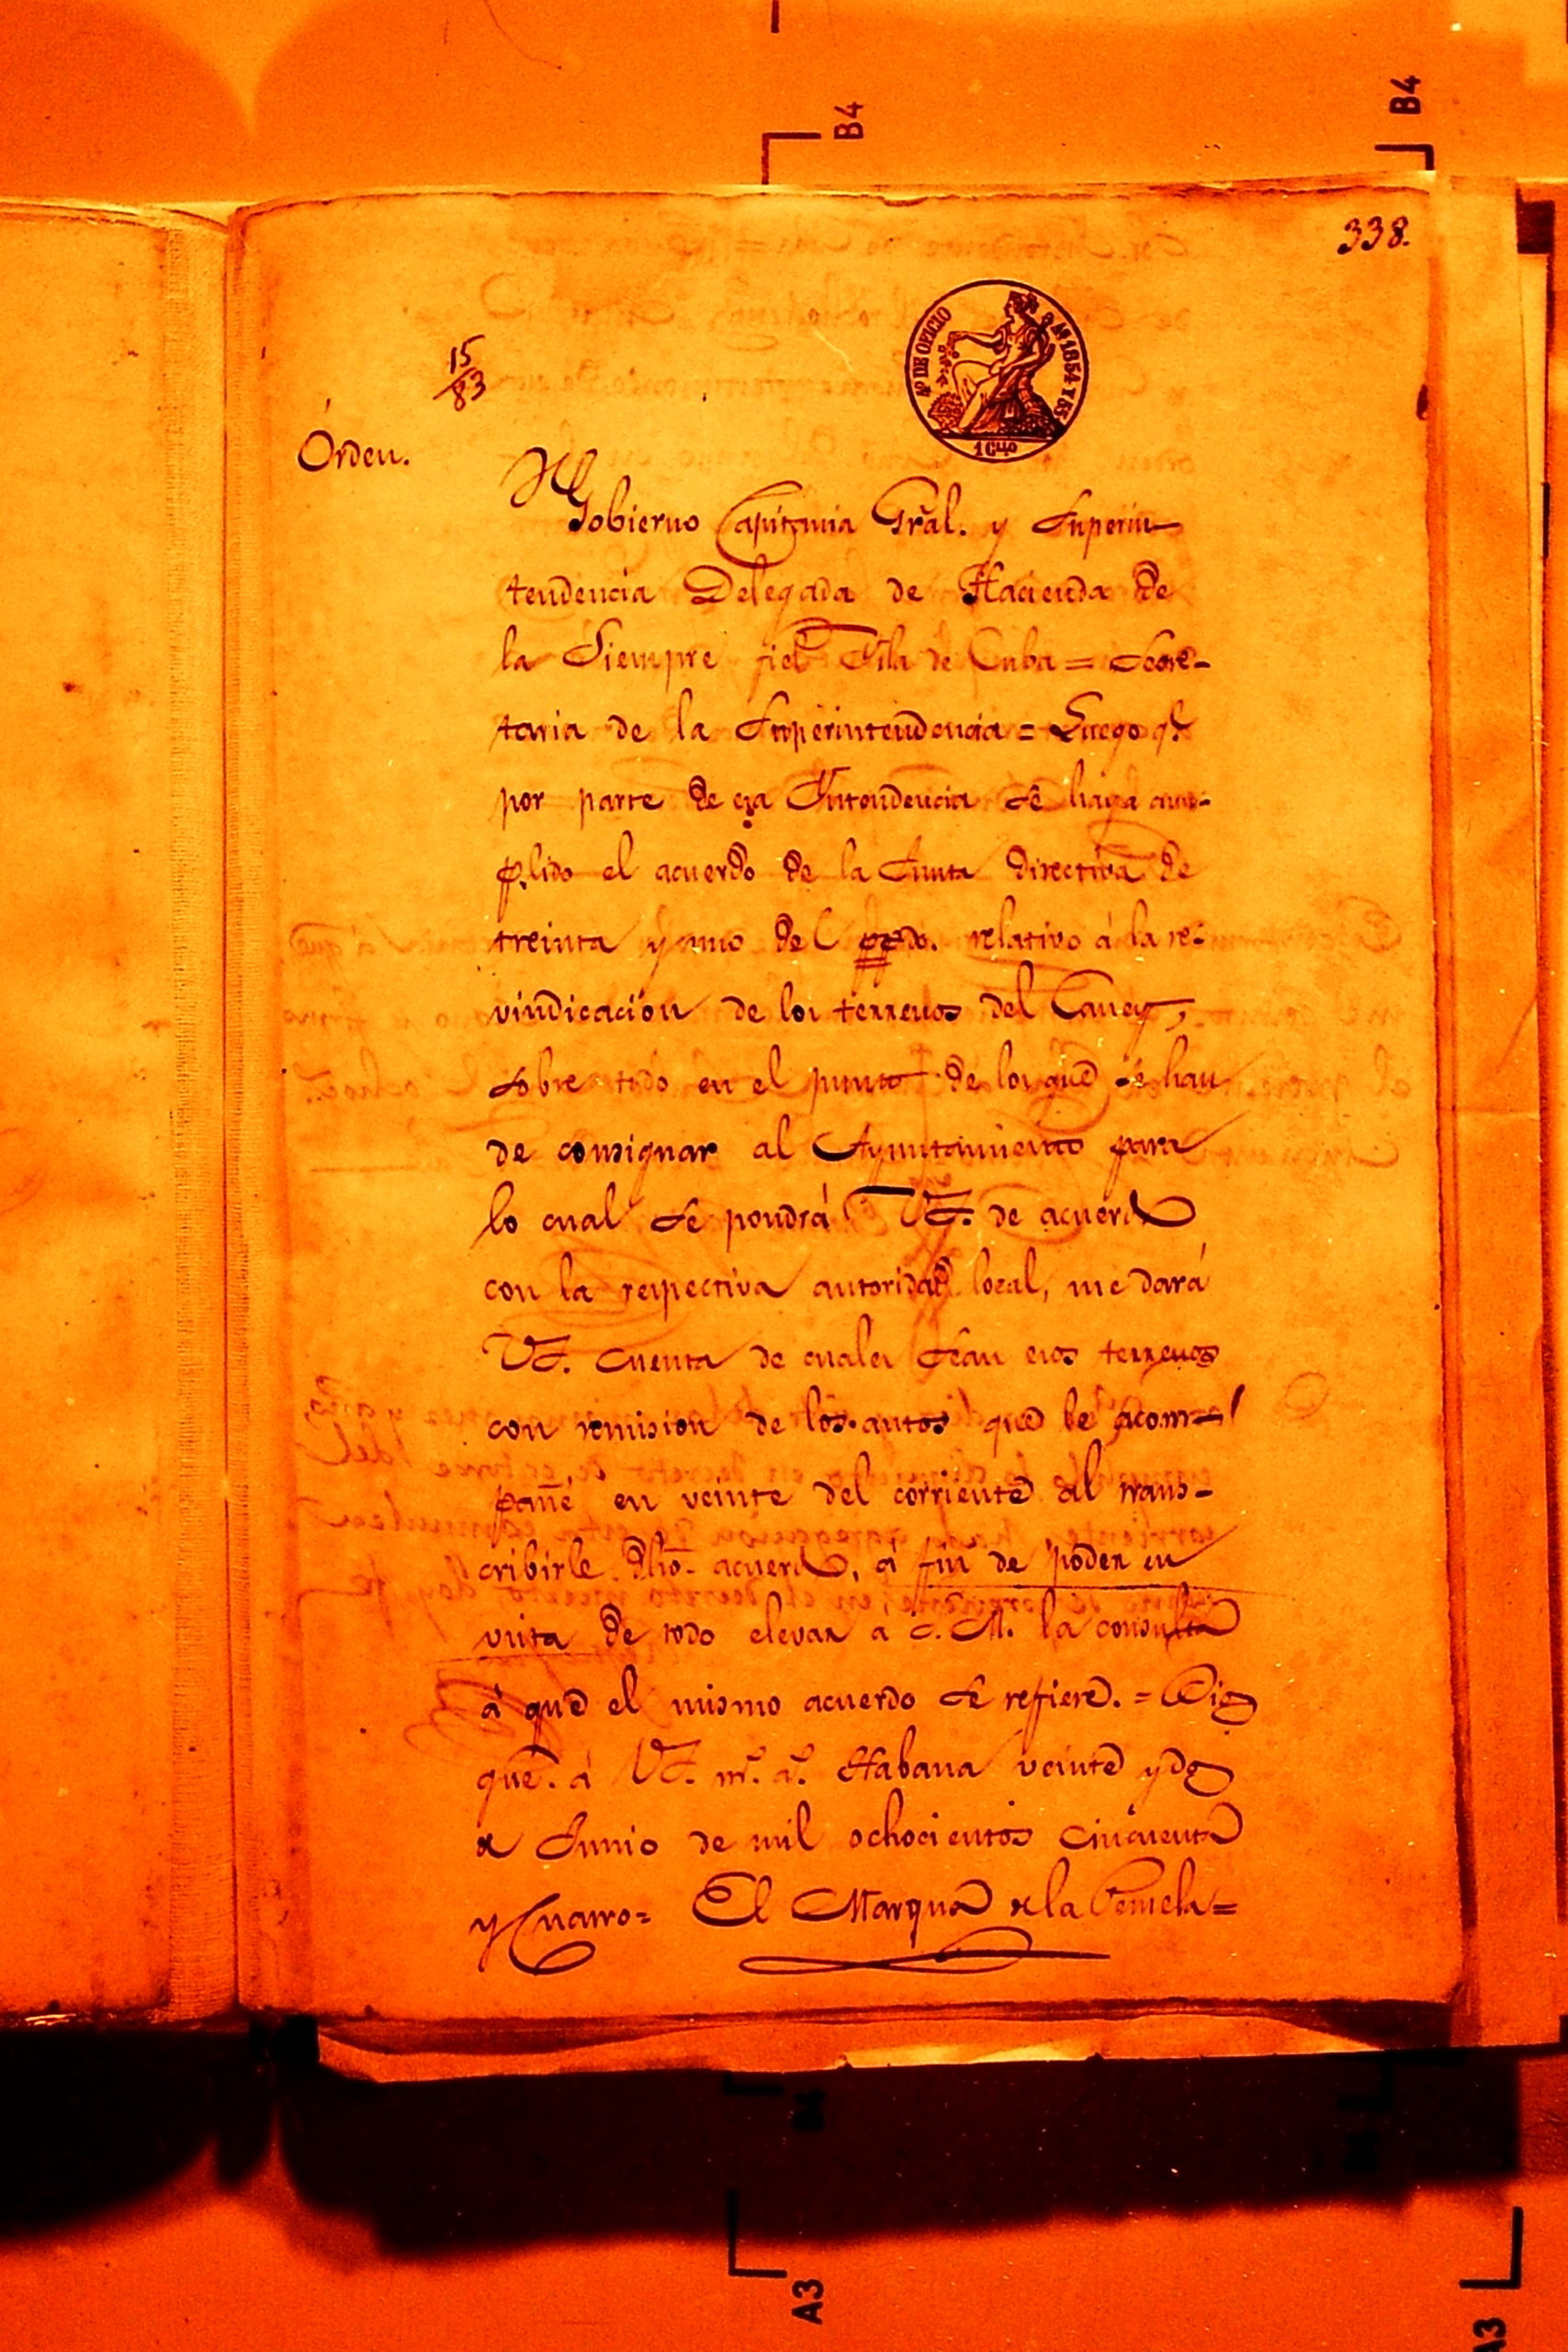 B4
B4
338.
Aº DE OFICIO
AS 1854 Y 55
15
83
Órden.
Gobierno Capitania Gral. y Superin
tendencia Delegada de Hacienda de
la Siempre fiel Isla de Cuba = Secre-
taria de la Superintendencia = Luego q.e
por parte de esa Intendencia se haya cum-
plido el acuerdo de la Junta directiva de
treinta y uno del ppdo. relativo á la re-
vindicacion de los terrenos del Caney,
sobre todo en el punto de los que se han
de consignar al Ayuntamiento para
lo cual se pondrá VS. de acuerdo
con la respectiva autoridad local, me dará
VS. cuenta de cuales sean esos terrenos
con remision de los autos que le acom-
pañé en veinte del corriente al trans-
cribirle dho. acuerdo, á fin de poder en
vista de todo elevar a S. M. la consulta
á que el mismo acuerdo se refiere. = Dios
que. á VS. m.s a.s Habana veinte y dos
de Junio de mil ochocientos cincuenta
y Cuatro = El Marques de la Pezuela =
A3
A3